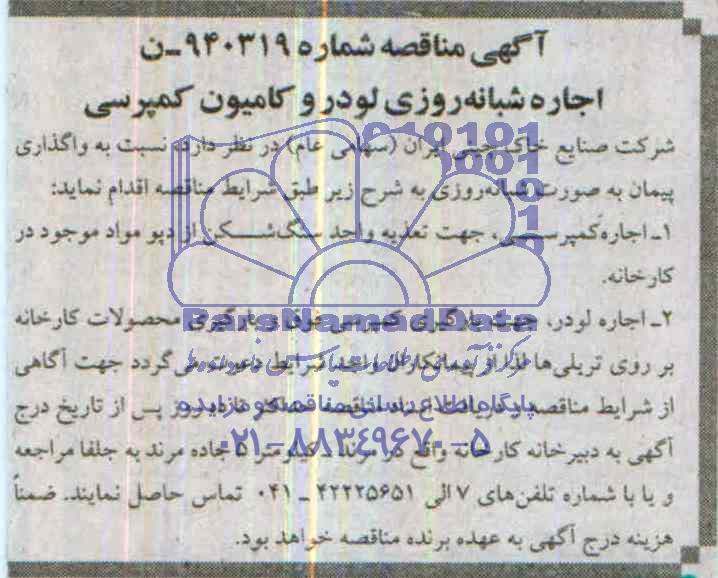 آگهی مناقصه شماره ۹۴۰۳۱۹-ن
اجاره شبانه‌روزی لودر و کامیون کمپرسی
شرکت صنایع خاک چینی ایران (سهامی عام) در نظر دارد نسبت به واگذاری
پیمان به صورت شبانه‌روزی به شرح زیر طبق شرایط مناقصه اقدام نماید:
۱ـ اجاره کمپرسی، جهت تغذیه واحد سنگ‌شکن از دپو مواد موجود در
کارخانه.
۲ـ اجاره لودر، جهت بارگیری کمپرسی فوق و بارگیری محصولات کارخانه
ParsNamadData
بر روی تریلی‌ها لذا از پیمانکاران واجد شرایط دعوت می‌گردد جهت آگاهی
از شرایط مناقصه و دریافت اسناد مناقصه حداکثر تا ده روز پس از تاریخ درج
پایگاه اطلاع رسانی مناقصه و مزایده
آگهی به دبیرخانه کارخانه واقع در مرند، کیلومتر ۵ جاده مرند به جلفا مراجعه
۰۲۱-۸۸۳۴۹۶۷۰-۵
و یا با شماره تلفن‌های ۷ الی ۴۲۲۲۵۶۵۱ ـ ۰۴۱ تماس حاصل نمایند. ضمناً
هزینه درج آگهی به عهده برنده مناقصه خواهد بود.